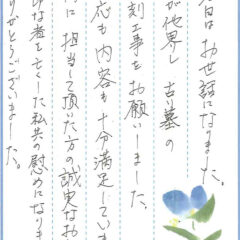 日はお世話になりました。
が他界し 古い墓の
刻工事をお願いしました。
応も内容も十分満足していま
に担当して頂いた方の誠実なお
な者を亡くした私共の慰めになりま
りがとうございました。